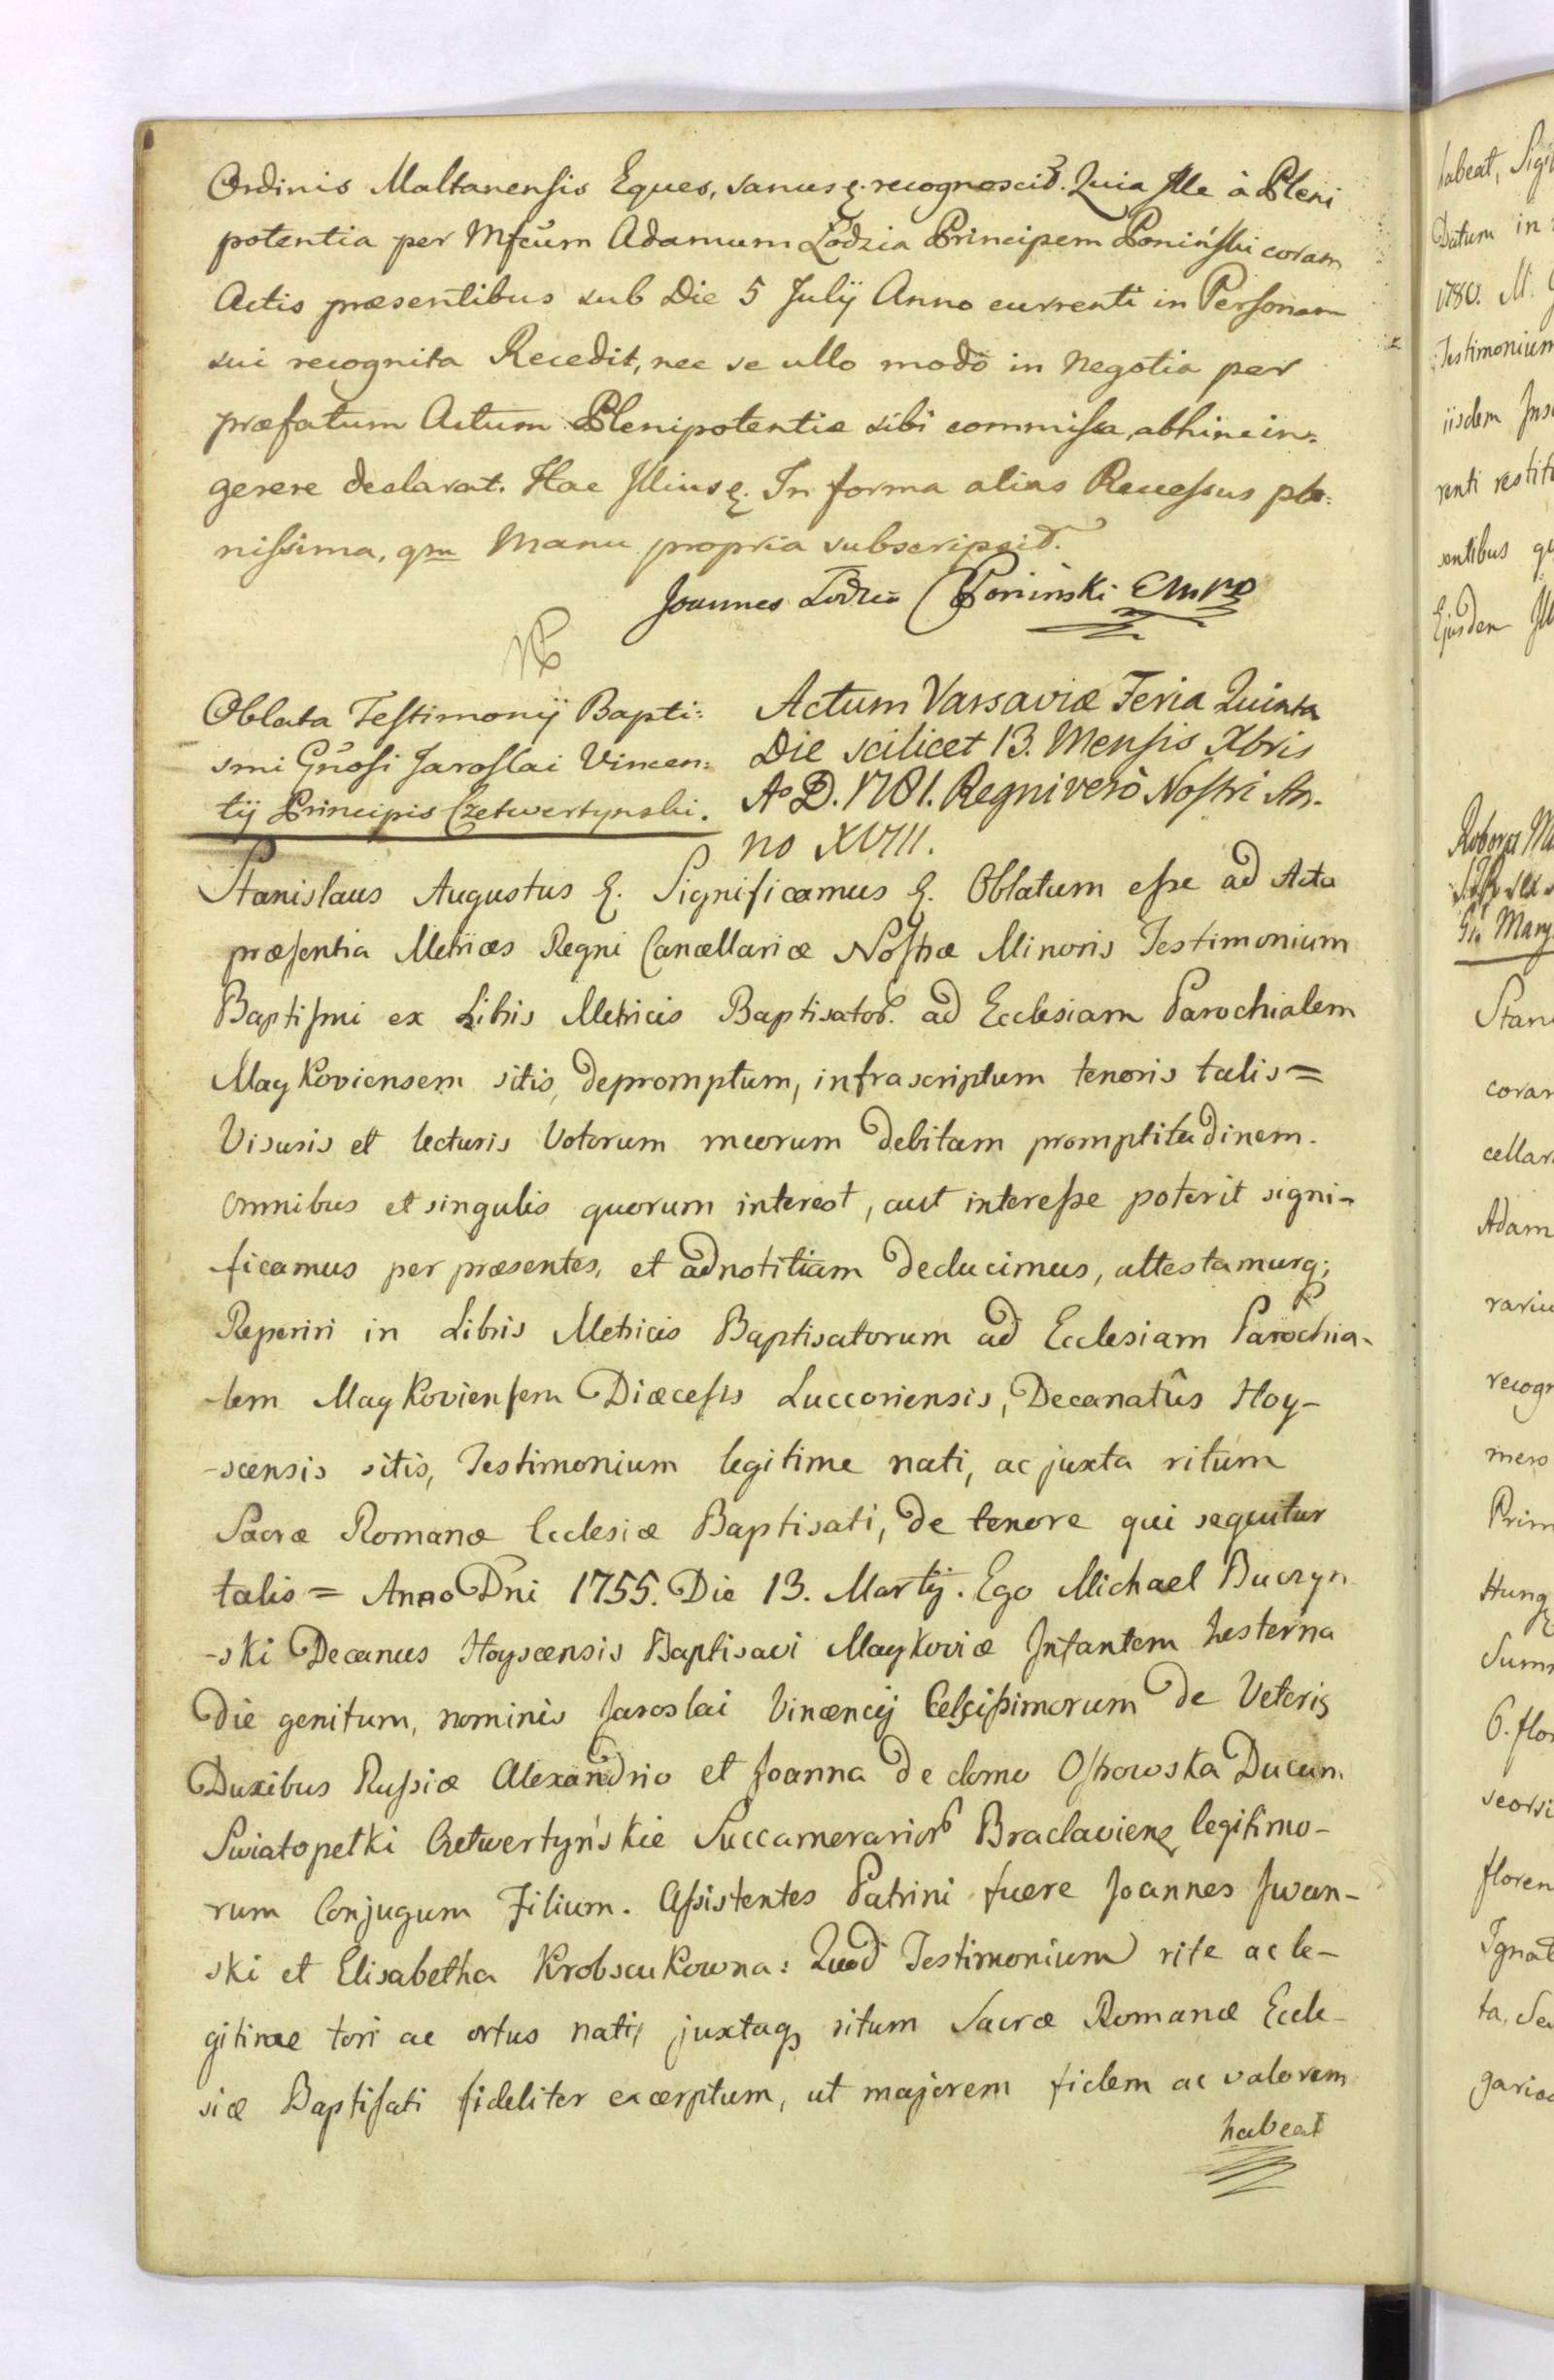 Ordinis Maltanensis Eques, sanus &. recognoscit. Quia Ille à Pleni
potentia per Mfcum Adamum Łodzia Principem Poniński coram
Actis præsentibus sub Die 5 Julij Anno currenti in Personam
sui recognita Recedit, nec se ullo modo in negotia per
præfatum Actum Plenipotentiæ sibi commissa, abhinc in=
gerere declarat. Hac Illius &. In forma alias Recessus ple=
nissima, qm Manu propria subscripsit.
Joannes Łodzia Poniński
Oblata Testimonij Bapti=
smi Gnosi Jaroslai Vincen=
tij Principis Czetwertynski.
Actum Varsaviæ Feria Quinta
Die scilicet 13. Mensis Xbris
Ao D. 1781. Regni verò Nostri An-
no XVIII.
Stanislaus Augustus &. Significamus &. Oblatum esse ad Acta
præsentia Metrices Regni Cancellariæ Nostræ Minoris Testimonium
Baptismi ex Libris Metricis Baptisator. ad Ecclesiam Parochialem
Maykoviensem sitis, depromptum, infrascriptum tenoris talis =
Visuris et lecturis Votorum meorum debitam promptitudinem.
Omnibus et singulis quorum interest, aut interesse poterit signi-
ficamus per præsentes, et ad notitiam deducimus, attestamurq;
Reperiri in Libris Metricis Baptisatorum ad Ecclesiam Parochia-
-lem Maykoviensem Diæcesis Luccoriensis, Decanatûs Hoy-
-scensis sitis, Testimonium legitime nati, ac juxta ritum
Sacræ Romanæ Ecclesiæ Baptisati, de tenore qui sequitur
talis = Anno Dni 1755. Die 13. Martij. Ego Michael Buczyn
-ski Decanus Hoyscensis Baptisavi Maykoviæ Infantem hesterna
Die genitum, nominis Jaroslai Vincencij Celsissimorum de Veteris
Duxibus Russiæ Alexandrio et Joanna de domo Ostrowska Ducum
Swiatopełki Czetwertyńskie Succamerarior Braclaviens legitimo-
rum Conjugum Filium. Assistentes Patrini fuere Joannes Iwan-
ski et Elisabetha : Quod Testimonium rite ac le-
gitimæ tori ac ortus nati, juxtaq ritum Sacræ Romanæ Eccle-
siæ Baptisati fideliter excerptum, ut majorem fidem ac valorem
habeat
habeat,
Datum in
1780. M.
Testimonium
iisdem
renti
sentibus
Ejusdem
coram
Adam
recogn
mero
Hung
florem